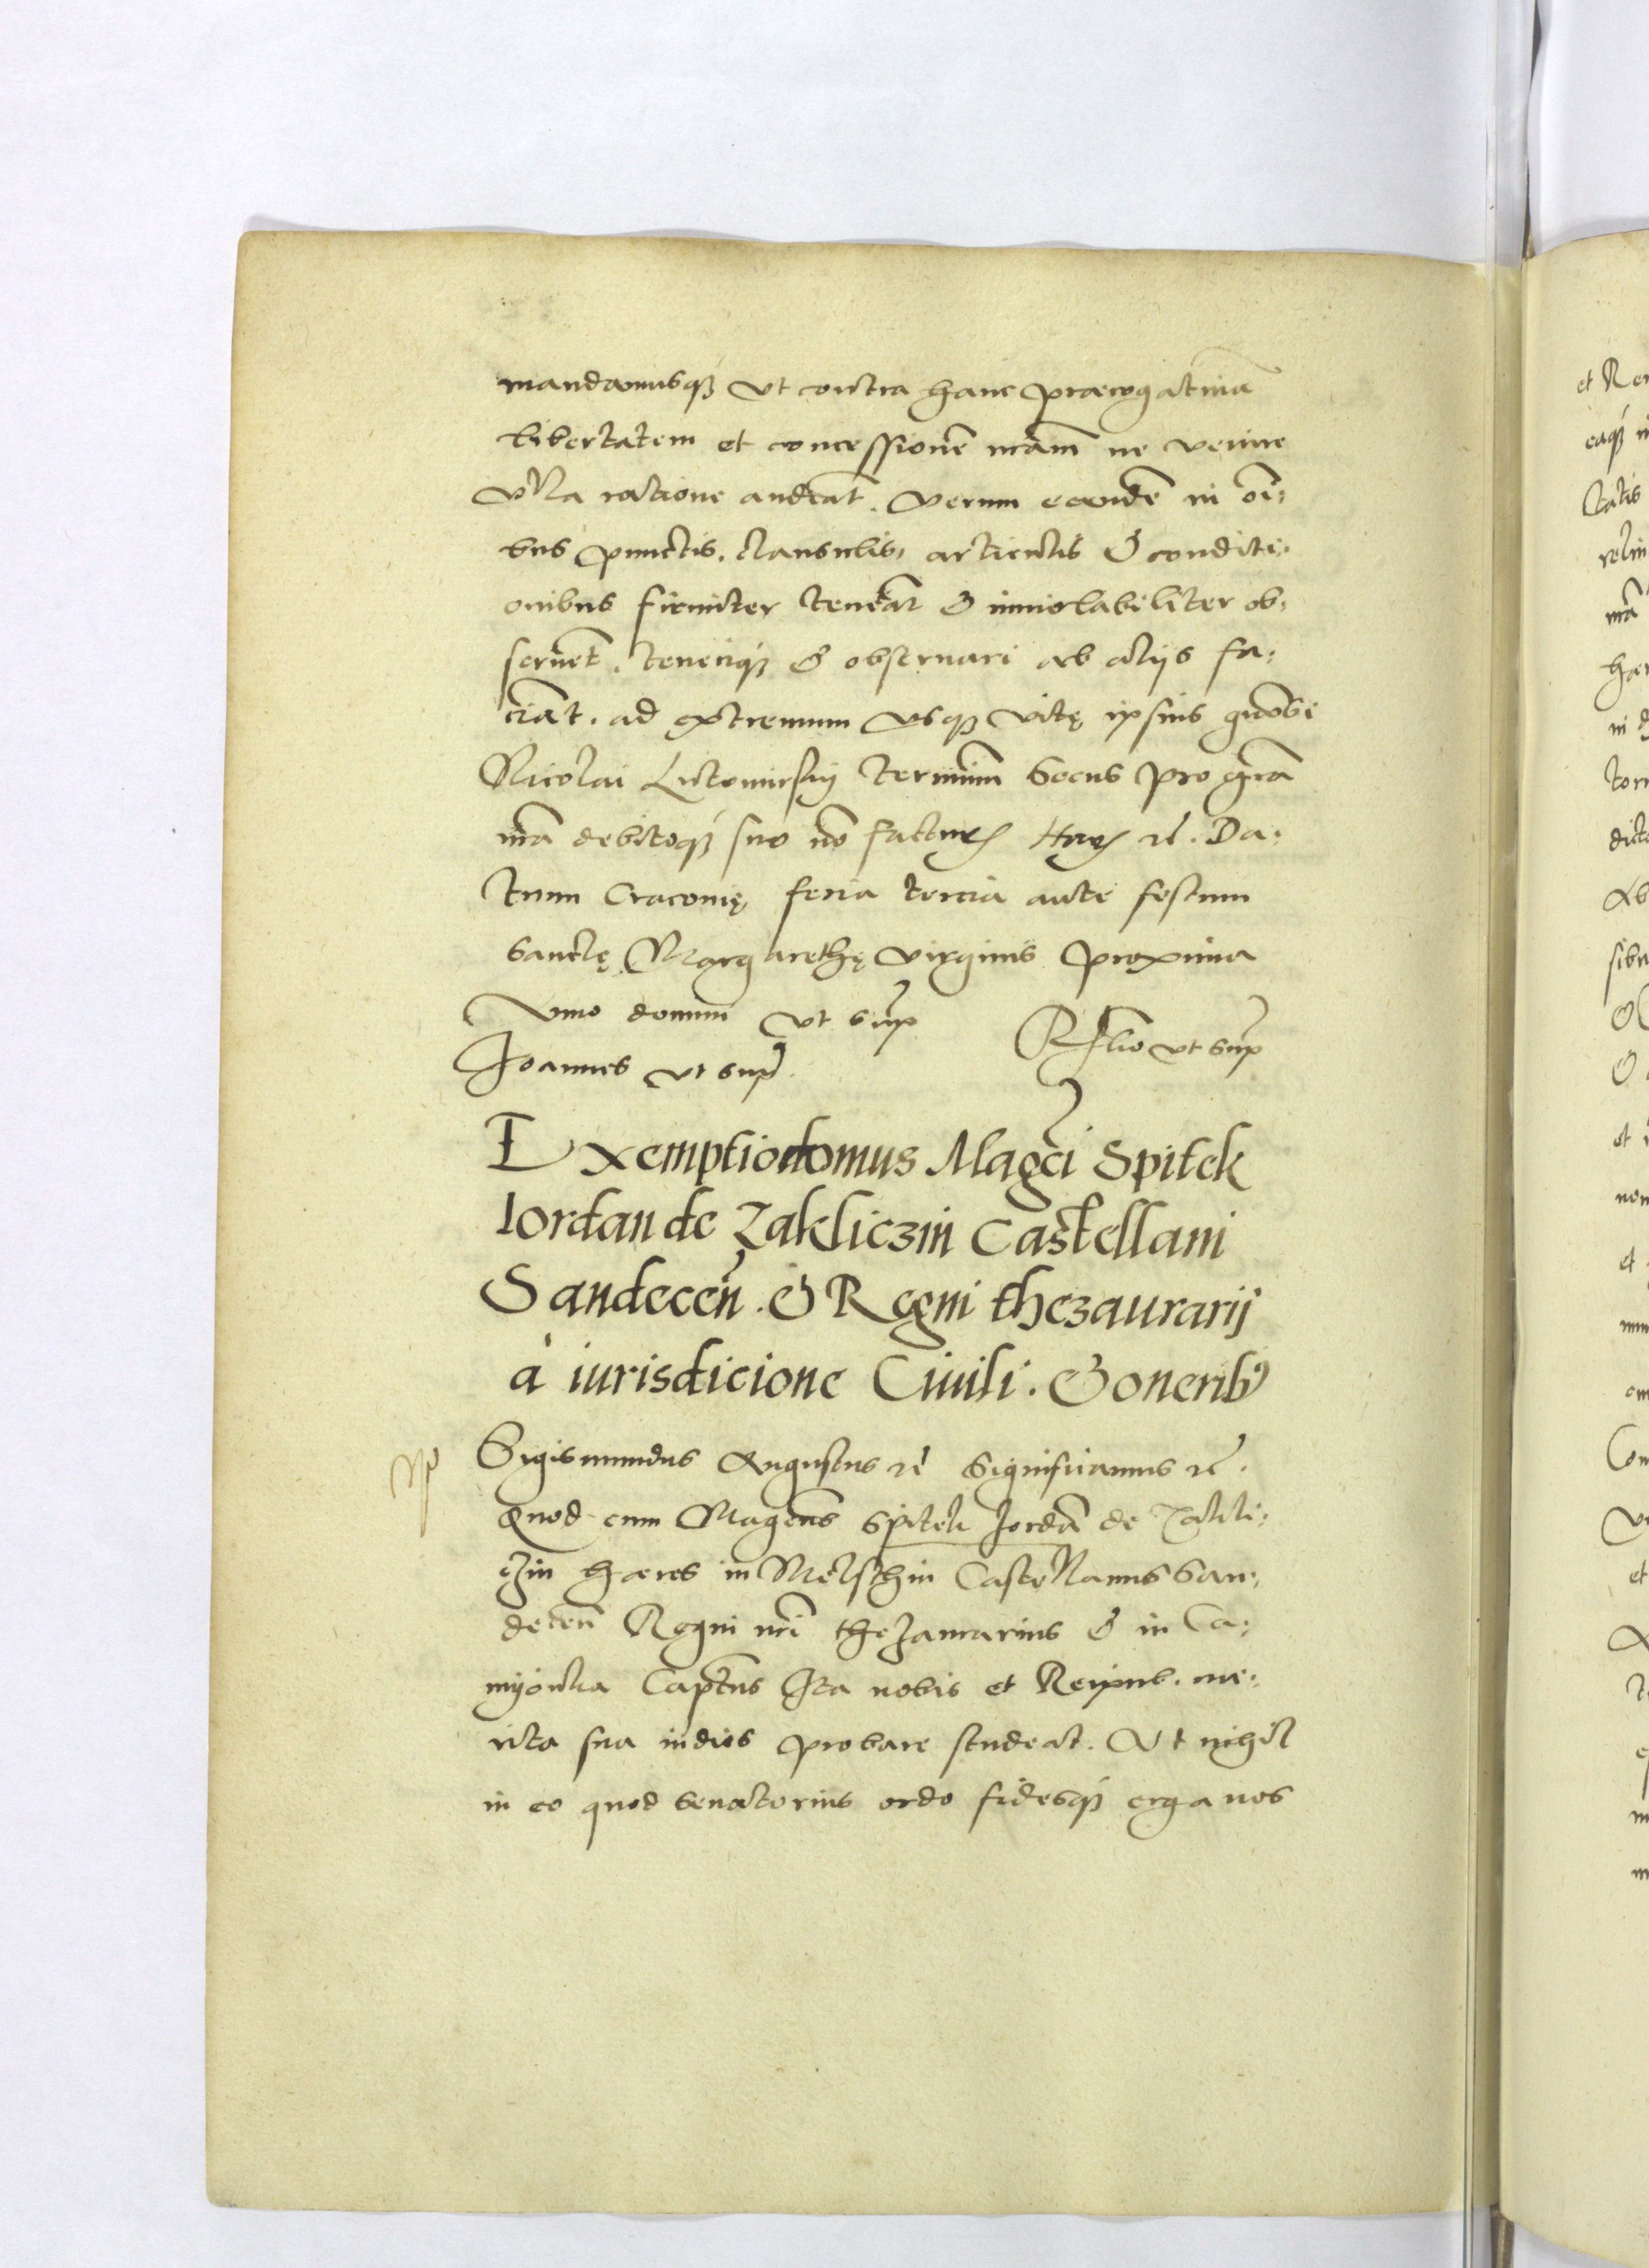 mandamusq ut contra hanc prærogatiuā
libertatem et concessionē nrām ne venire
vlla ratione audeāt. verum eandē in oī:
bus punctis, clausulis, articulis & conditi:
onibus firmiter teneāt & inuiolabiliter ob:
seruēt, teneriq & obseruari ab alijs fa:
ciāt. ad extremum vsq vitę ipsius gñosi
Nicolai Lutomirskij terminū Secus pro grā
nrā debitoq suo nō factur Har rē. Da:
tum Cracouię feria tercia ante festum
Sanctę Margarethę virginis proxima
Anno domini vt sup
Rlio vt sup
Joannes vt sup
Exemptio domus Magci Spitek
Iordan de Zakliczin Castellani
Sandeceñ. & Regni thezaurarij
à iurisdicione Ciuili. & oneribꝰ
Sigismundus Augustus rē Significamus rē.
Quod cum Magcūs Spitek Jordā de Zakli:
czin hæres in Melschin Castellanus San:
deceñ Regni nrī thezaurarius & in Ca:
myonka Captēus Ita nobis et Reipub. me:
rita sua indies probare studeat. Vt nihil
in eo quod senatorius ordo fidesq erga nos